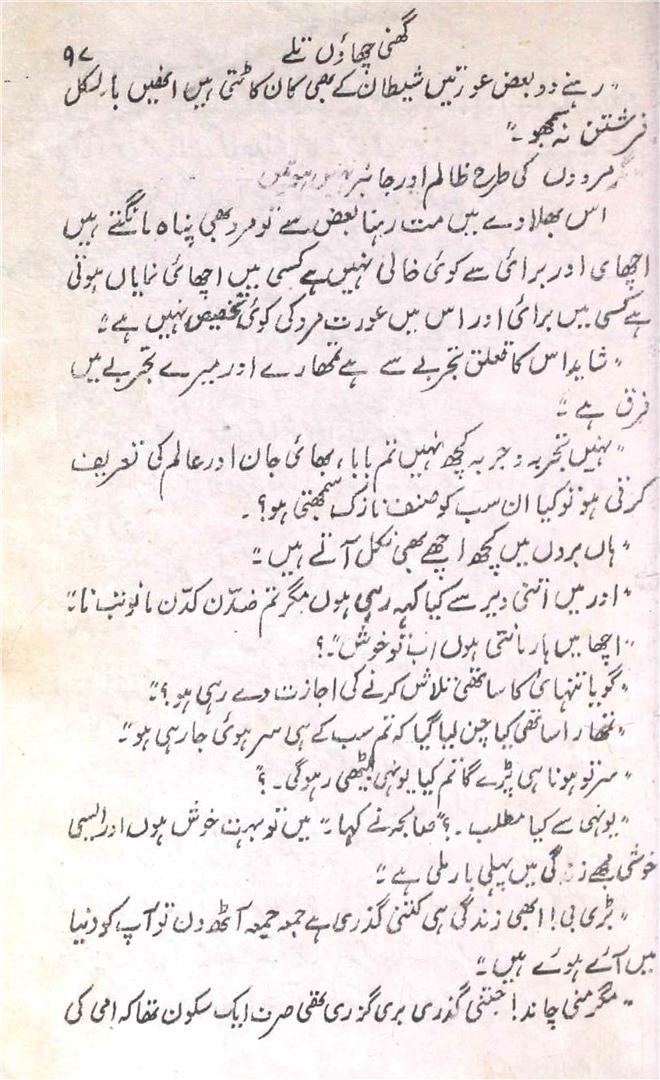 گھنی چھاؤں تلے ۹۷
"رہنے دو بعض عورتیں شیطان کے بھی کان کاٹتی ہیں انھیں بالکل
فرشتن نہ سمجھو۔"
مگر مردوں کی طرح ظالم اور جابر نہیں ہوتیں
اس بھلاوے میں مت رہنا بعض سے تو مرد بھی پناہ مانگتے ہیں
اچھائی اور برائی سے کوئی خالی نہیں ہے کسی میں اچھائی نمایاں ہوتی
ہے کسی میں برائی اور اس میں عورت مرد کی کوئی تخصیص نہیں ہے۔"
"شاید اس کا تعلق تجربے سے ہے تمھارے اور میرے تجربے میں
فرق ہے۔"
"نہیں تجربہ وجربہ کچھ نہیں تم بابا، بھائی جان اور عالم کی تعریف
کرتی ہو تو کیا ان سب کو صنف نازک سمجھتی ہو؟۔
"ہاں بروں میں کچھ اچھے بھی نکل آتے ہیں۔"
"اور میں اتنی دیر سے کیا کہہ رہی ہوں مگر تم ضدّن کدّن مانو تب نا۔"
"اچھا میں ہار مانتی ہوں اب تو خوش"۔؟
"گویا تنہائی کا ساتھی تلاش کرنے کی اجازت دے رہی ہو؟"۔
"تمھارا ساتھی کیا چن لیا گیا کہ تم سب کے ہی سر ہوئی جا رہی ہو۔"
"سر تو ہونا ہی پڑے گا تم کیا یونہی بیٹھی رہو گی۔؟"
"یونہی سے کیا مطلب۔؟" صالحہ نے کہا۔" میں تو بہت خوش ہوں اور ایسی
خوشی مجھے زندگی میں پہلی بار ملی ہے۔"
"بڑی بی! ابھی زندگی ہی کتنی گذری ہے جمعہ جمعہ آٹھ دن تو آپ کو دنیا
میں آئے ہوئے ہیں۔"
"مگر منی چاند! جتنی گذری بری گزری تھی صرف ایک سکون تھا کہ امی کی